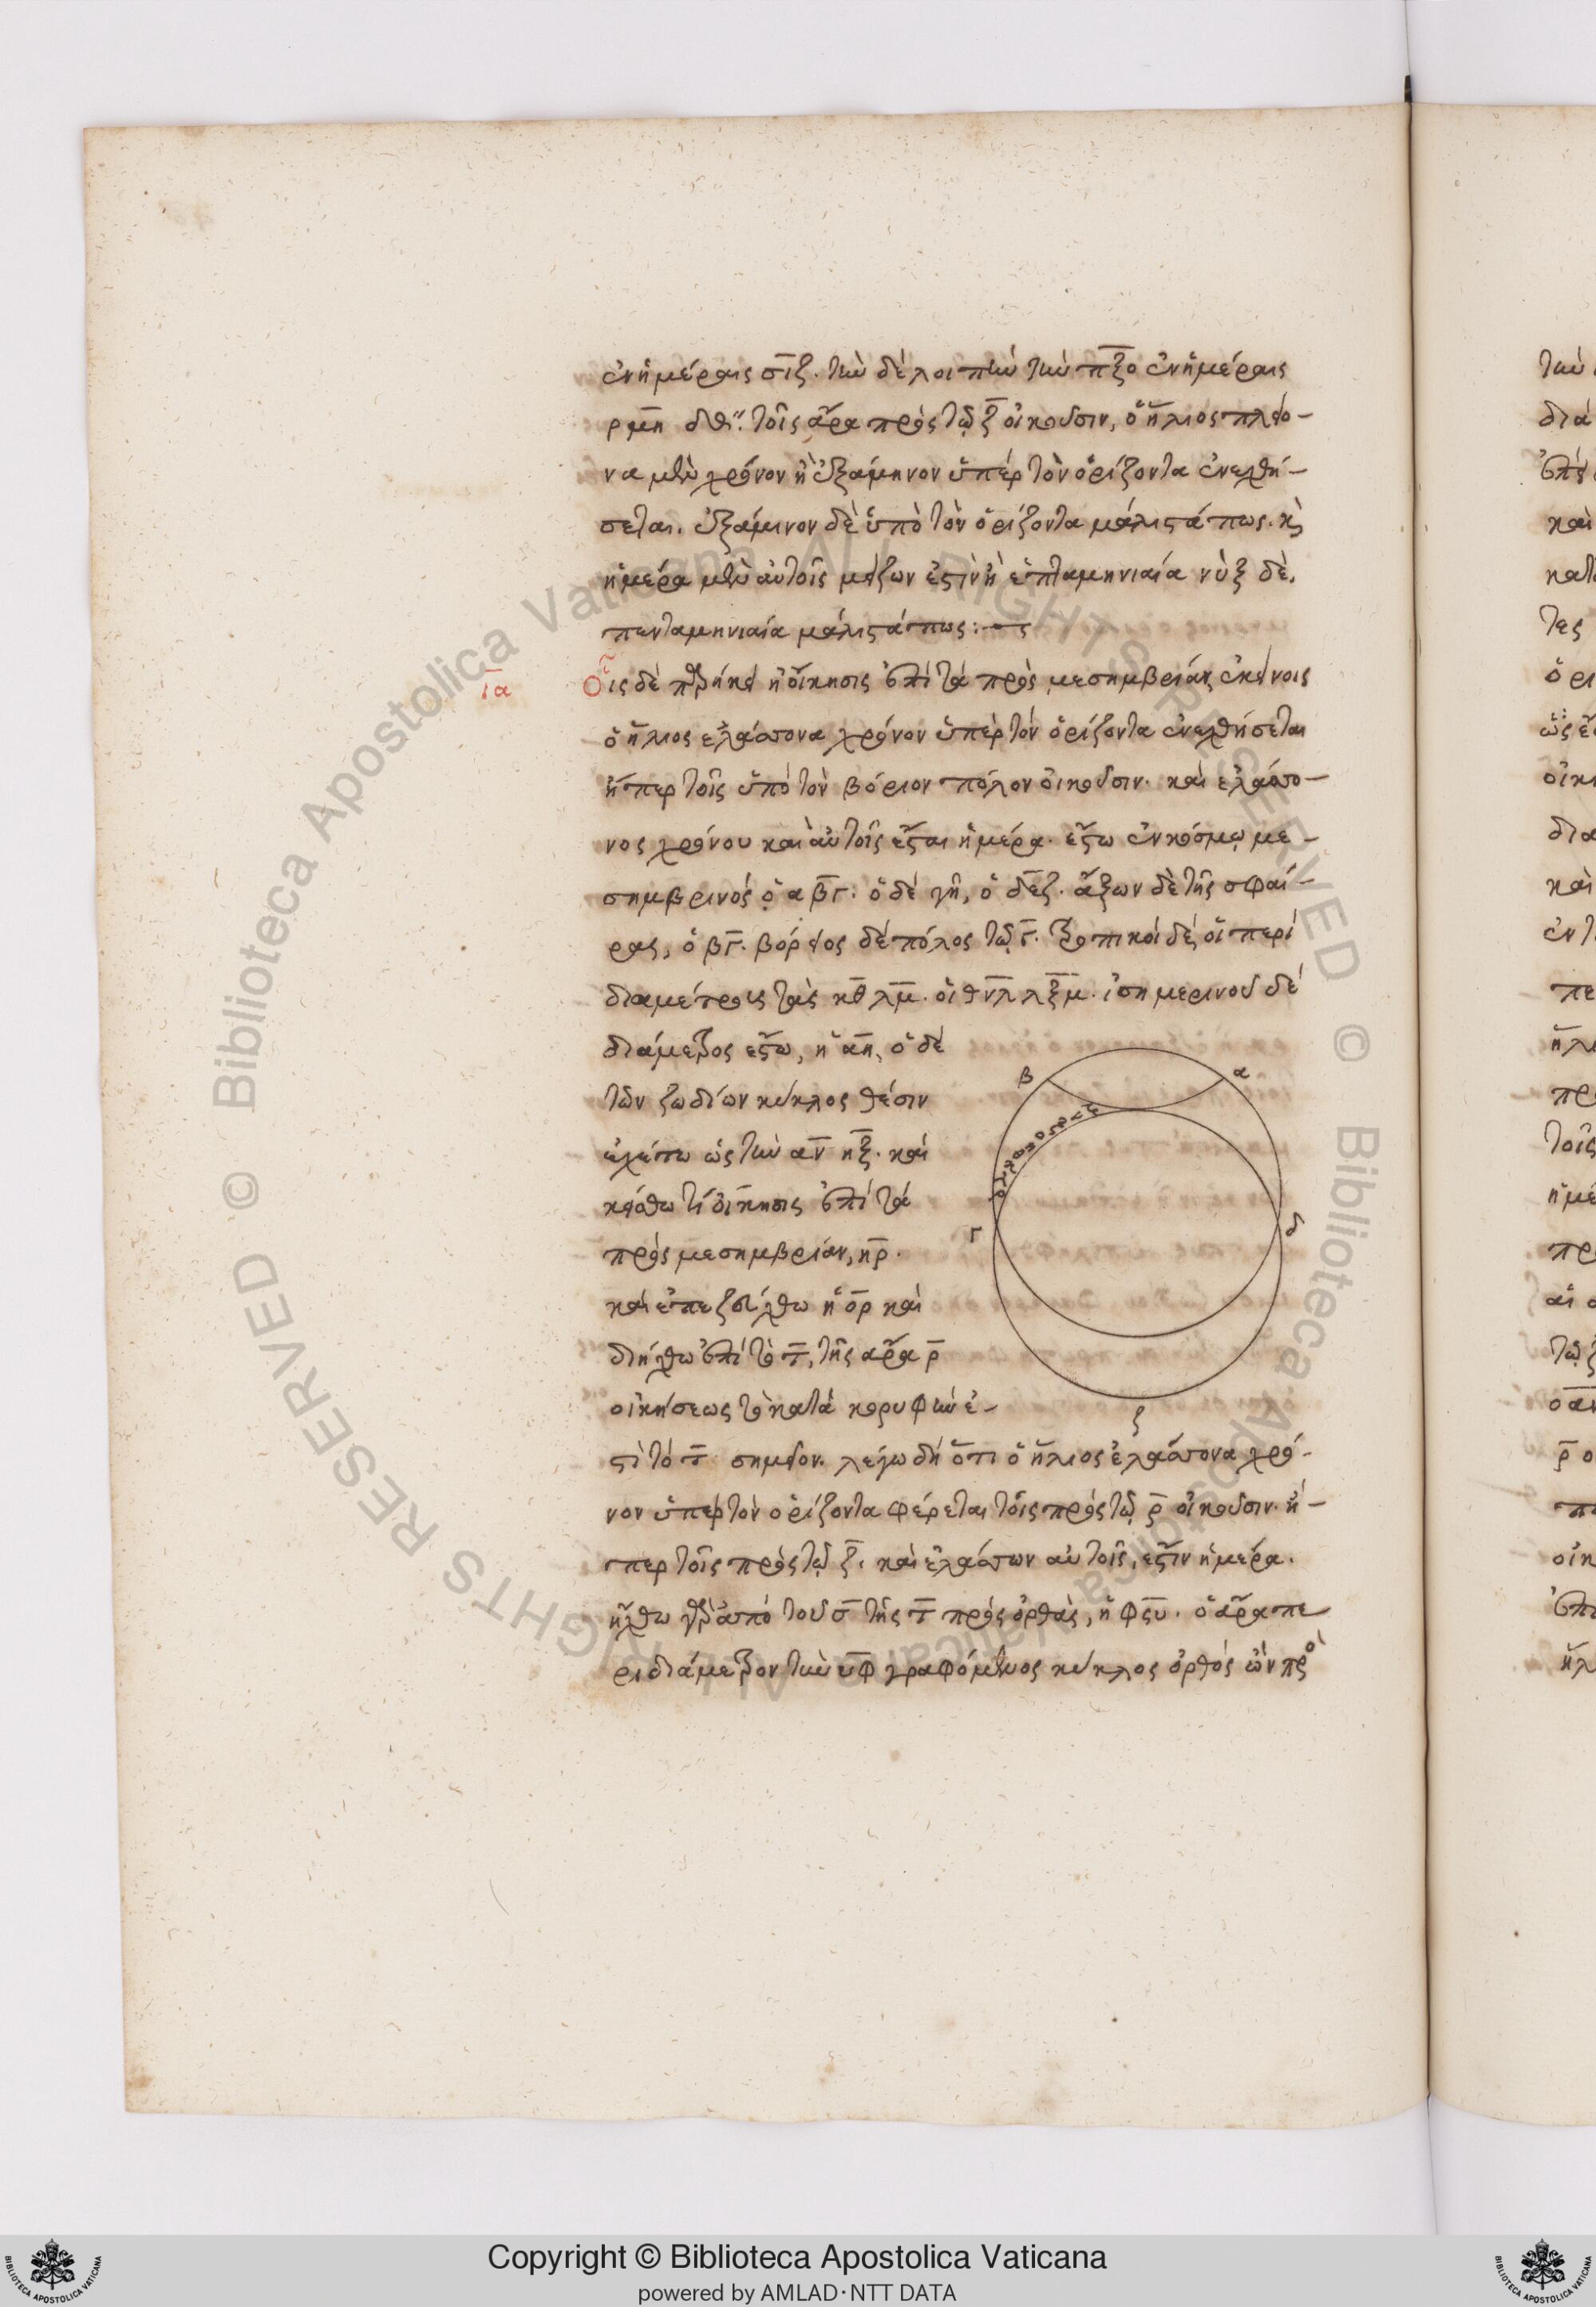 ἐν ἡμέραις σιζ. τὴν δὲ λοιπὴν τὴν πξο ἐν ἡμέραις
ρμη δθ΄΄. τοῖς ἄρα πρὸς τῷ ξ οἰκοῦσιν, ὁ ἥλιος πλείο-
να μὲν χρόνον ἢ ἑξάμηνον ὑπὲρ τὸν ὁρίζοντα ἐνεχθή-
σεται. ἑξάμινον δὲ ὑπὸ τὸν ὁρίζοντα μάλιστά πως. κὶ
ἡμέρα μὲν αὐτοῖς μείζων ἐστὶν ἢ ἑπταμηνιαία νὺξ δὲ,
πενταμηνιαία μάλιστά πως:
ια Οἷς δὲ παρήκει ἡ οἴκησις ἐπὶ τὰ πρὸς μεσημβρίαν, ἐκείνοις
ὁ ἥλιος ἐλάττονα χρόνον ὑπὲρ τὸν ὁρίζοντα ἐνεχθήσεται
ἤπερ τοῖς ὑπὸ τὸν βόριον πόλον οἰκοῦσιν. καὶ ἐλάττο-
νος χρόνου καὶ αὐτοῖς ἔσται ἡμέρα. ἔστω ἐν κόσμῳ με-
σημβρινὸς ὁ αβγ. ὁ δὲ γῆ, ὁ δεζ. ἄξων δὲ τῆς σφαί-
ρας, ὁ βγ. βόρειος δὲ πόλος τῷ γ. τροπικοὶ δὲ οἱ περὶ
διαμέτροις τὰς κθ λμ. οἱ θνλ λξμ. ἰσημερινοῦ δὲ
διάμετρος ἔστω, ἡ αη, ὁ δὲ
τῶν ζωδίων κύκλος θέσιν
ἐχέτω ὡς τὴν αν ηξ. καὶ
κείσθω τὶ οἴκησις ἐπὶ τὰ
πρὸς μεσημβρίαν, ηρ.
καὶ ἐπεζεύχθω ἡ ορ καὶ
διήχθω ἐπὶ τὸ π, τῆς ἄρα ρ
οἰκήσεως τὸ κατὰ κορυφὴν ἐ-
στὶ τὸ π σημεῖον. λέγω δὴ ὅτι ὁ ἥλιος ἐλάττονα χρό-
νον ὑπὲρ τὸν ὁρίζοντα φέρεται τοῖς πρὸς τῷ ρ οἰκοῦσιν. ἤ-
περ τοῖς πρὸς τῷ ξ. καὶ ἐλάττων αὐτοῖς, ἐστὶν ἡμέρα.
ἤχθω γὰρ ἀπὸ τοῦ σ τῆς π πρὸς ὀρθὰς, ἡ φςυ. ὁ ἄρα πε
ρι διάμετρον τὴν υφ γραφόμενος κύκλος ὀρθὸς ὢν πρὸ
β
α
γ
δ
ζ
Copyright © Biblioteca Apostolica Vaticana
powered by AMLAD·NTT DATA
© Biblioteca Apostolica Vaticana ALL RIGHTS RESERVED
© Biblioteca Apostolica Vaticana ALL RIGHTS RESERVED